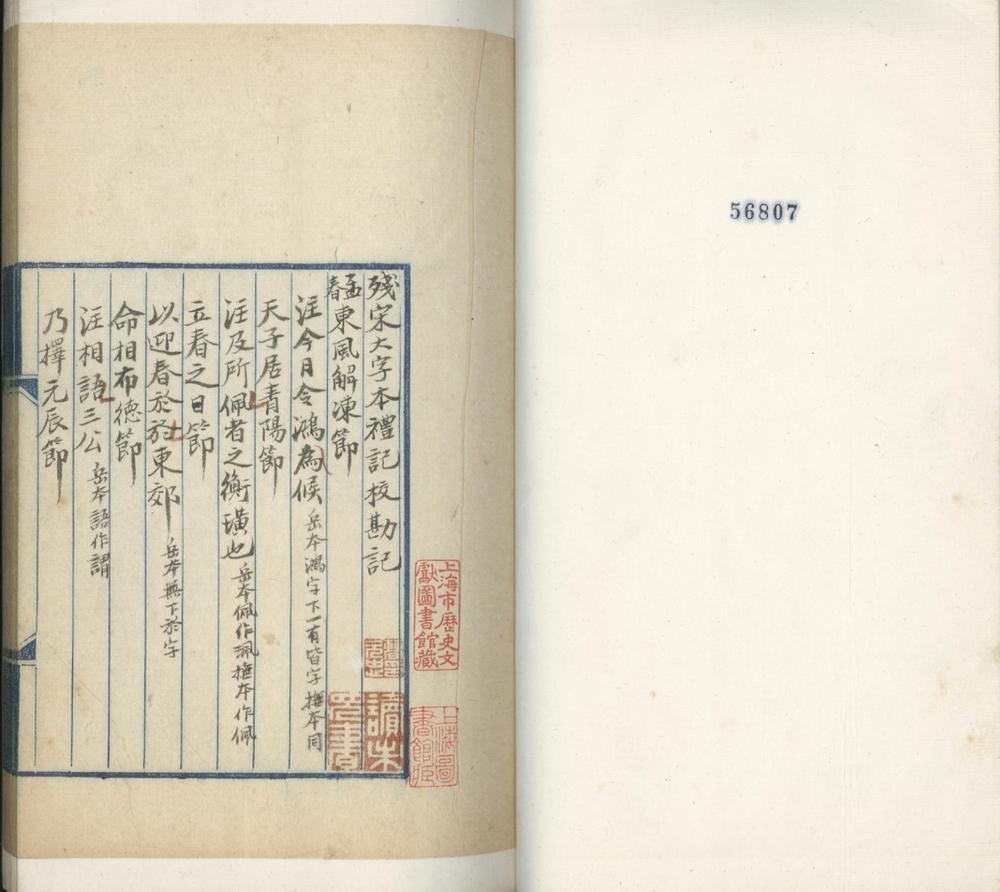 殘宋大字本禮記校勘記
孟春東風解凍節
注今月令鴻為候岳本鴻字下一有皆字撫本同
天子居青陽節
注及所佩者之衡璜也岳本佩作珮撫本作佩
立春之日節
以迎春於於東郊岳本無下於字
命相布德節
注相語三公岳本語作謂
乃擇元辰節
上海市歷史文
獻圖書館藏
上海圖
書館藏
56807